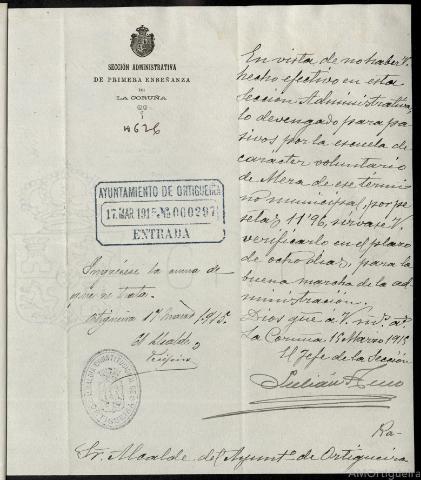 SECCIÓN ADMINISTRATIVA
DE PRIMERA ENSEÑANZA
DE
LA CORUÑA
4626
AYUNTAMIENTO DE ORTIGUEIRA
17. MAR. 1915 Nº 000297
ENTRADA
Ingrésese la suma de
que se trata.
Ortigueira 17 marzo 1915.
El Alcalde
En vista de no haber V.
hecho efectivo en esta
Sección Administrativa,
lo devengado para pa-
sivos por la escuela de
carácter voluntario
de Mera de ese térmi-
no municipal, por pe-
setas 11'96, sírvase V.
verificarlo en el plazo
de ocho días, para la
buena marcha de la ad-
ministración.
Dios gue á V. m. a.
La Coruña 15 Marzo 1915
El Jefe de la Sección
Julián
Sr. Alcalde del Ayuntº de Ortigueira
AMOrtigueira